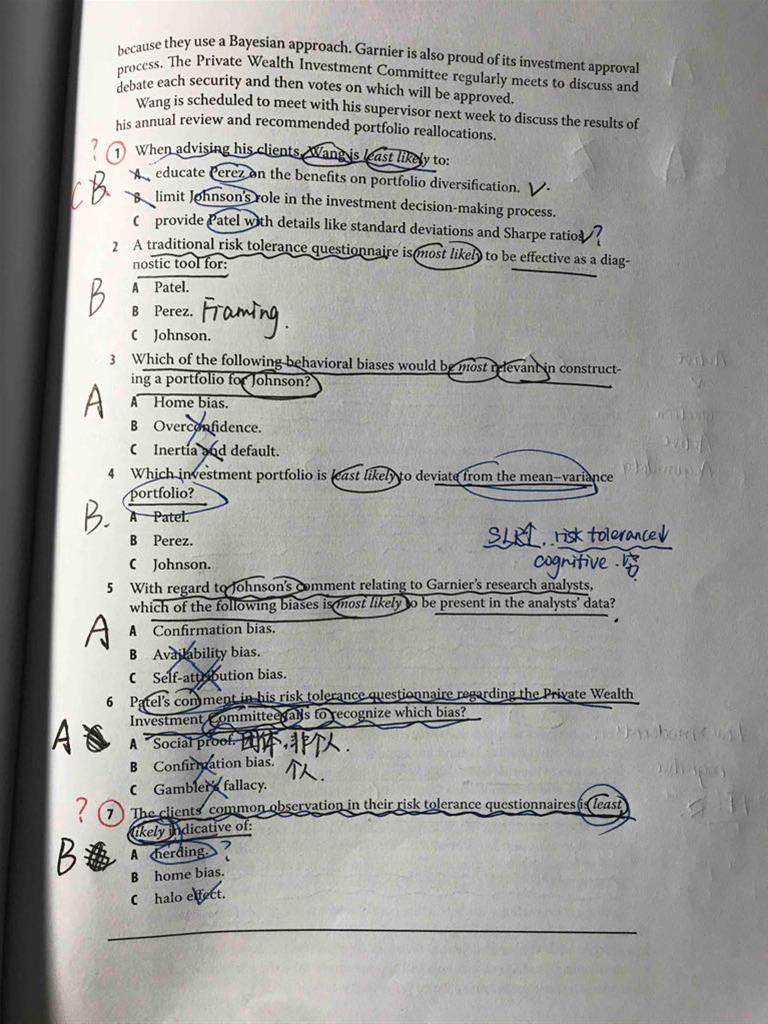 because they use a Bayesian approach. Garnier is also proud of its investment approval
process. The Private Wealth Investment Committee regularly meets to discuss and
debate each security and then votes on which will be approved.
Wang is scheduled to meet with his supervisor next week to discuss the results of
his annual review and recommended portfolio reallocations.
? 1 When advising his clients, Wang is least likely to:
C B. A educate Perez on the benefits on portfolio diversification. ✓.
B limit Johnson's role in the investment decision-making process.
C provide Patel with details like standard deviations and Sharpe ratios ✓?
2 A traditional risk tolerance questionnaire is most likely to be effective as a diag-
nostic tool for:
B A Patel.
B Perez. Framing.
C Johnson.
3 Which of the following behavioral biases would be most relevant in construct-
ing a portfolio for Johnson?
A A Home bias.
B Overconfidence.
C Inertia and default.
4 Which investment portfolio is least likely to deviate from the mean–variance
portfolio?
B. A Patel.
B Perez. SLR↑. risk tolerance↓
C Johnson. cognitive.
5 With regard to Johnson's comment relating to Garnier's research analysts,
which of the following biases is most likely to be present in the analysts' data?
A A Confirmation bias.
B Availability bias.
C Self-attribution bias.
6 Patel's comment in his risk tolerance questionnaire regarding the Private Wealth
Investment Committee fails to recognize which bias?
A A Social proof. 团体, 非个人.
B Confirmation bias. 个人.
C Gambler's fallacy.
? 7 The clients' common observation in their risk tolerance questionnaires is least
likely indicative of:
B A herding. ?
B home bias.
C halo effect.